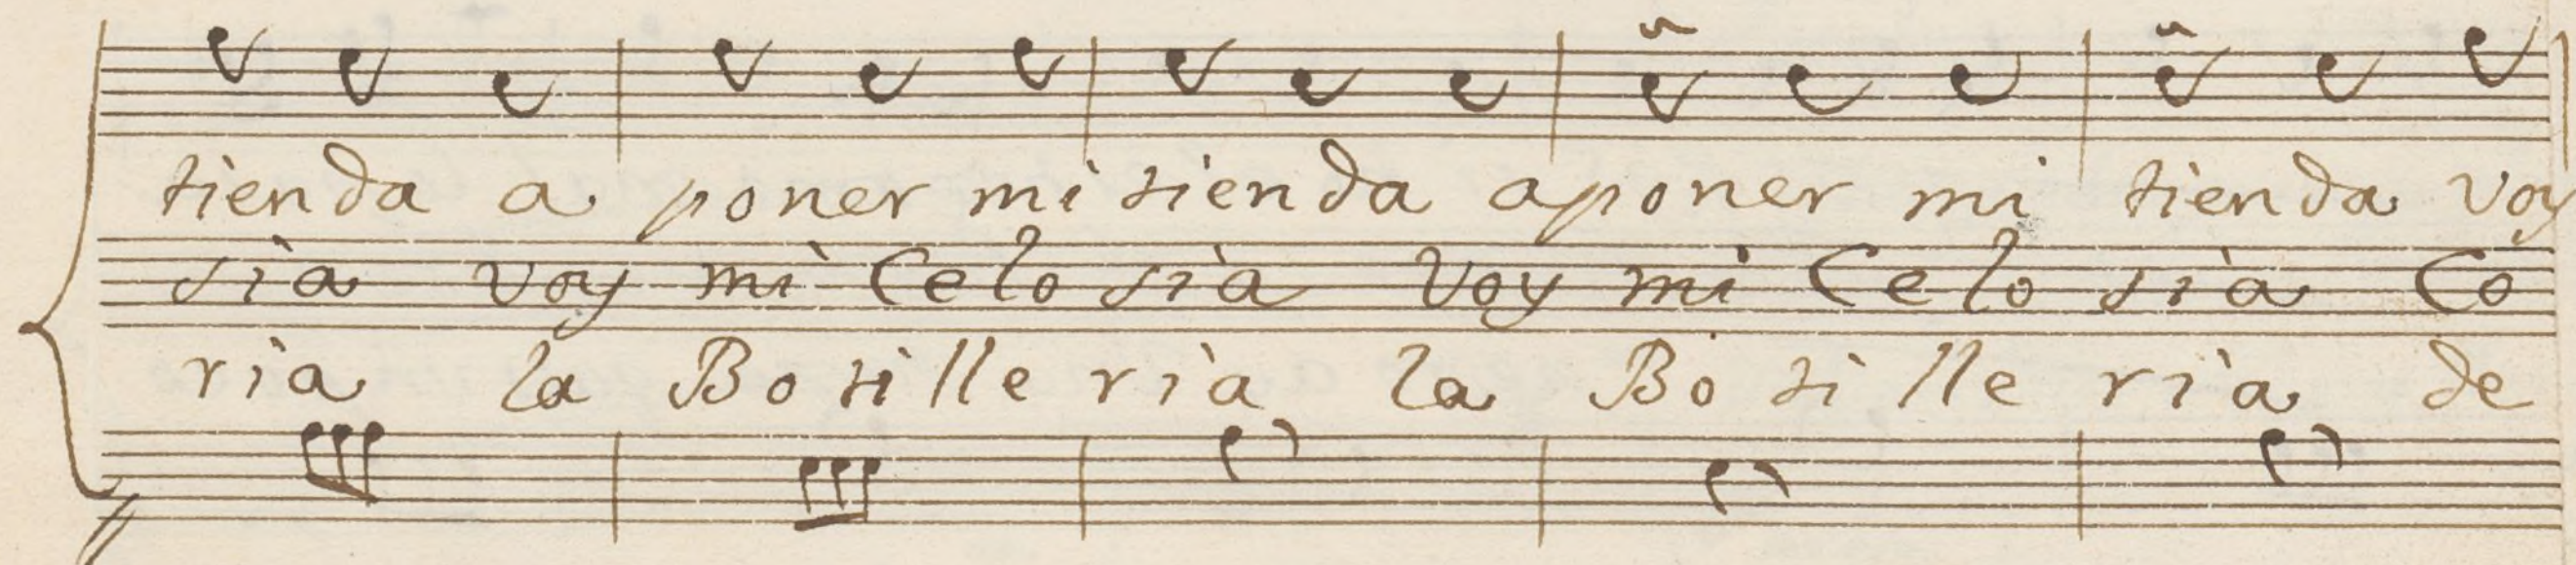 tienda a poner mi tienda aponer mi tienda voy
sìa voy mì Celo sìa Voy mi Celo sìa Co
rìa la Botille rìa la Botille rìa de